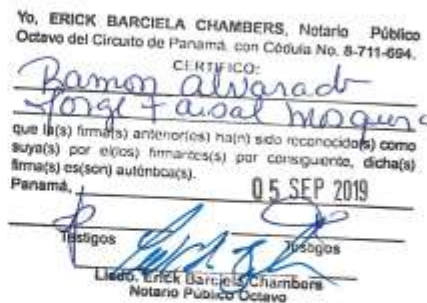 Yo, ERICK BARCIELA CHAMBERS, Notario Público
Octavo del Circuito de Panamá, con Cédula No. 8-711-694.
CERTIFICO:
Ramon Alvarado
Jorge Faisal Mosquera
que la(s) firma(s) anterior(es) ha(n) sido reconocida(s) como
suya(s) por el(los) firmantes(s) por consiguiente, dicha(s)
firma(s) es(son) auténtica(s).
05 SEP 2019
Panamá,
Testigos Testigos
Licdo. Erick Barciela Chambers
Notario Público Octavo